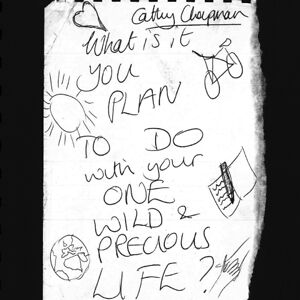 Cathy Chapman
What is it
you
PLAN
TO DO
with your
ONE
WILD &
PRECIOUS
LIFE?